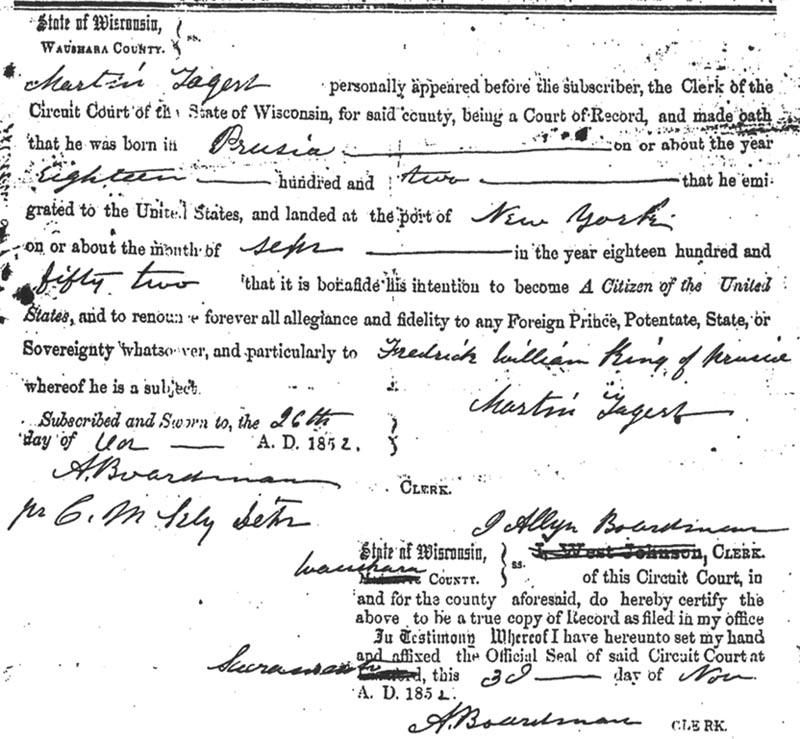 State of Wisconsin,
Waushara County. } ss.
Martin Tagert personally appeared before the subscriber, the Clerk of the
Circuit Court of the State of Wisconsin, for said county, being a Court of Record, and made oath
that he was born in Prusia on or about the year
Eighteen hundred and two that he emi-
grated to the United States, and landed at the port of New York
on or about the month of Sepr in the year eighteen hundred and
fifty two that it is bonafide his intention to become A Citizen of the United
States, and to renounce forever all allegiance and fidelity to any Foreign Prince, Potentate, State, or
Sovereignty whatsoever, and particularly to Fredrick William King of Prusia
whereof he is a subject.
Martin Tagert
Subscribed and Sworn to, the 26th
day of A. D. 1852.
A. Boardman CLERK.
pr C. M
I Allyn Boardman
State of Wisconsin, } ss. I, West Johnson, CLERK.
Waushara County. of this Circuit Court, in
and for the county aforesaid, do hereby certify the
above to be a true copy of Record as filed in my office
In Testimony Whereof I have hereunto set my hand
and affixed the Official Seal of said Circuit Court at
Sacramento, this day of Nov
A. D. 1852.
A. Boardman CLERK.